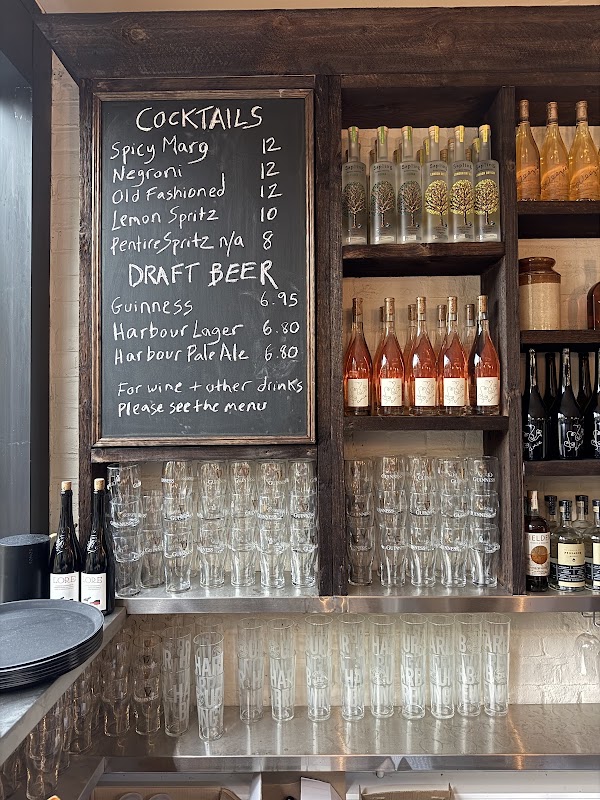 COCKTAILS
Spicy Marg 12
Negroni 12
Old Fashioned 12
Lemon Spritz 10
Pentire Spritz n/a 8
DRAFT BEER
Guinness 6.95
Harbour Lager 6.80
Harbour Pale Ale 6.80
For wine + other drinks
Please see the menu
GUINNESS